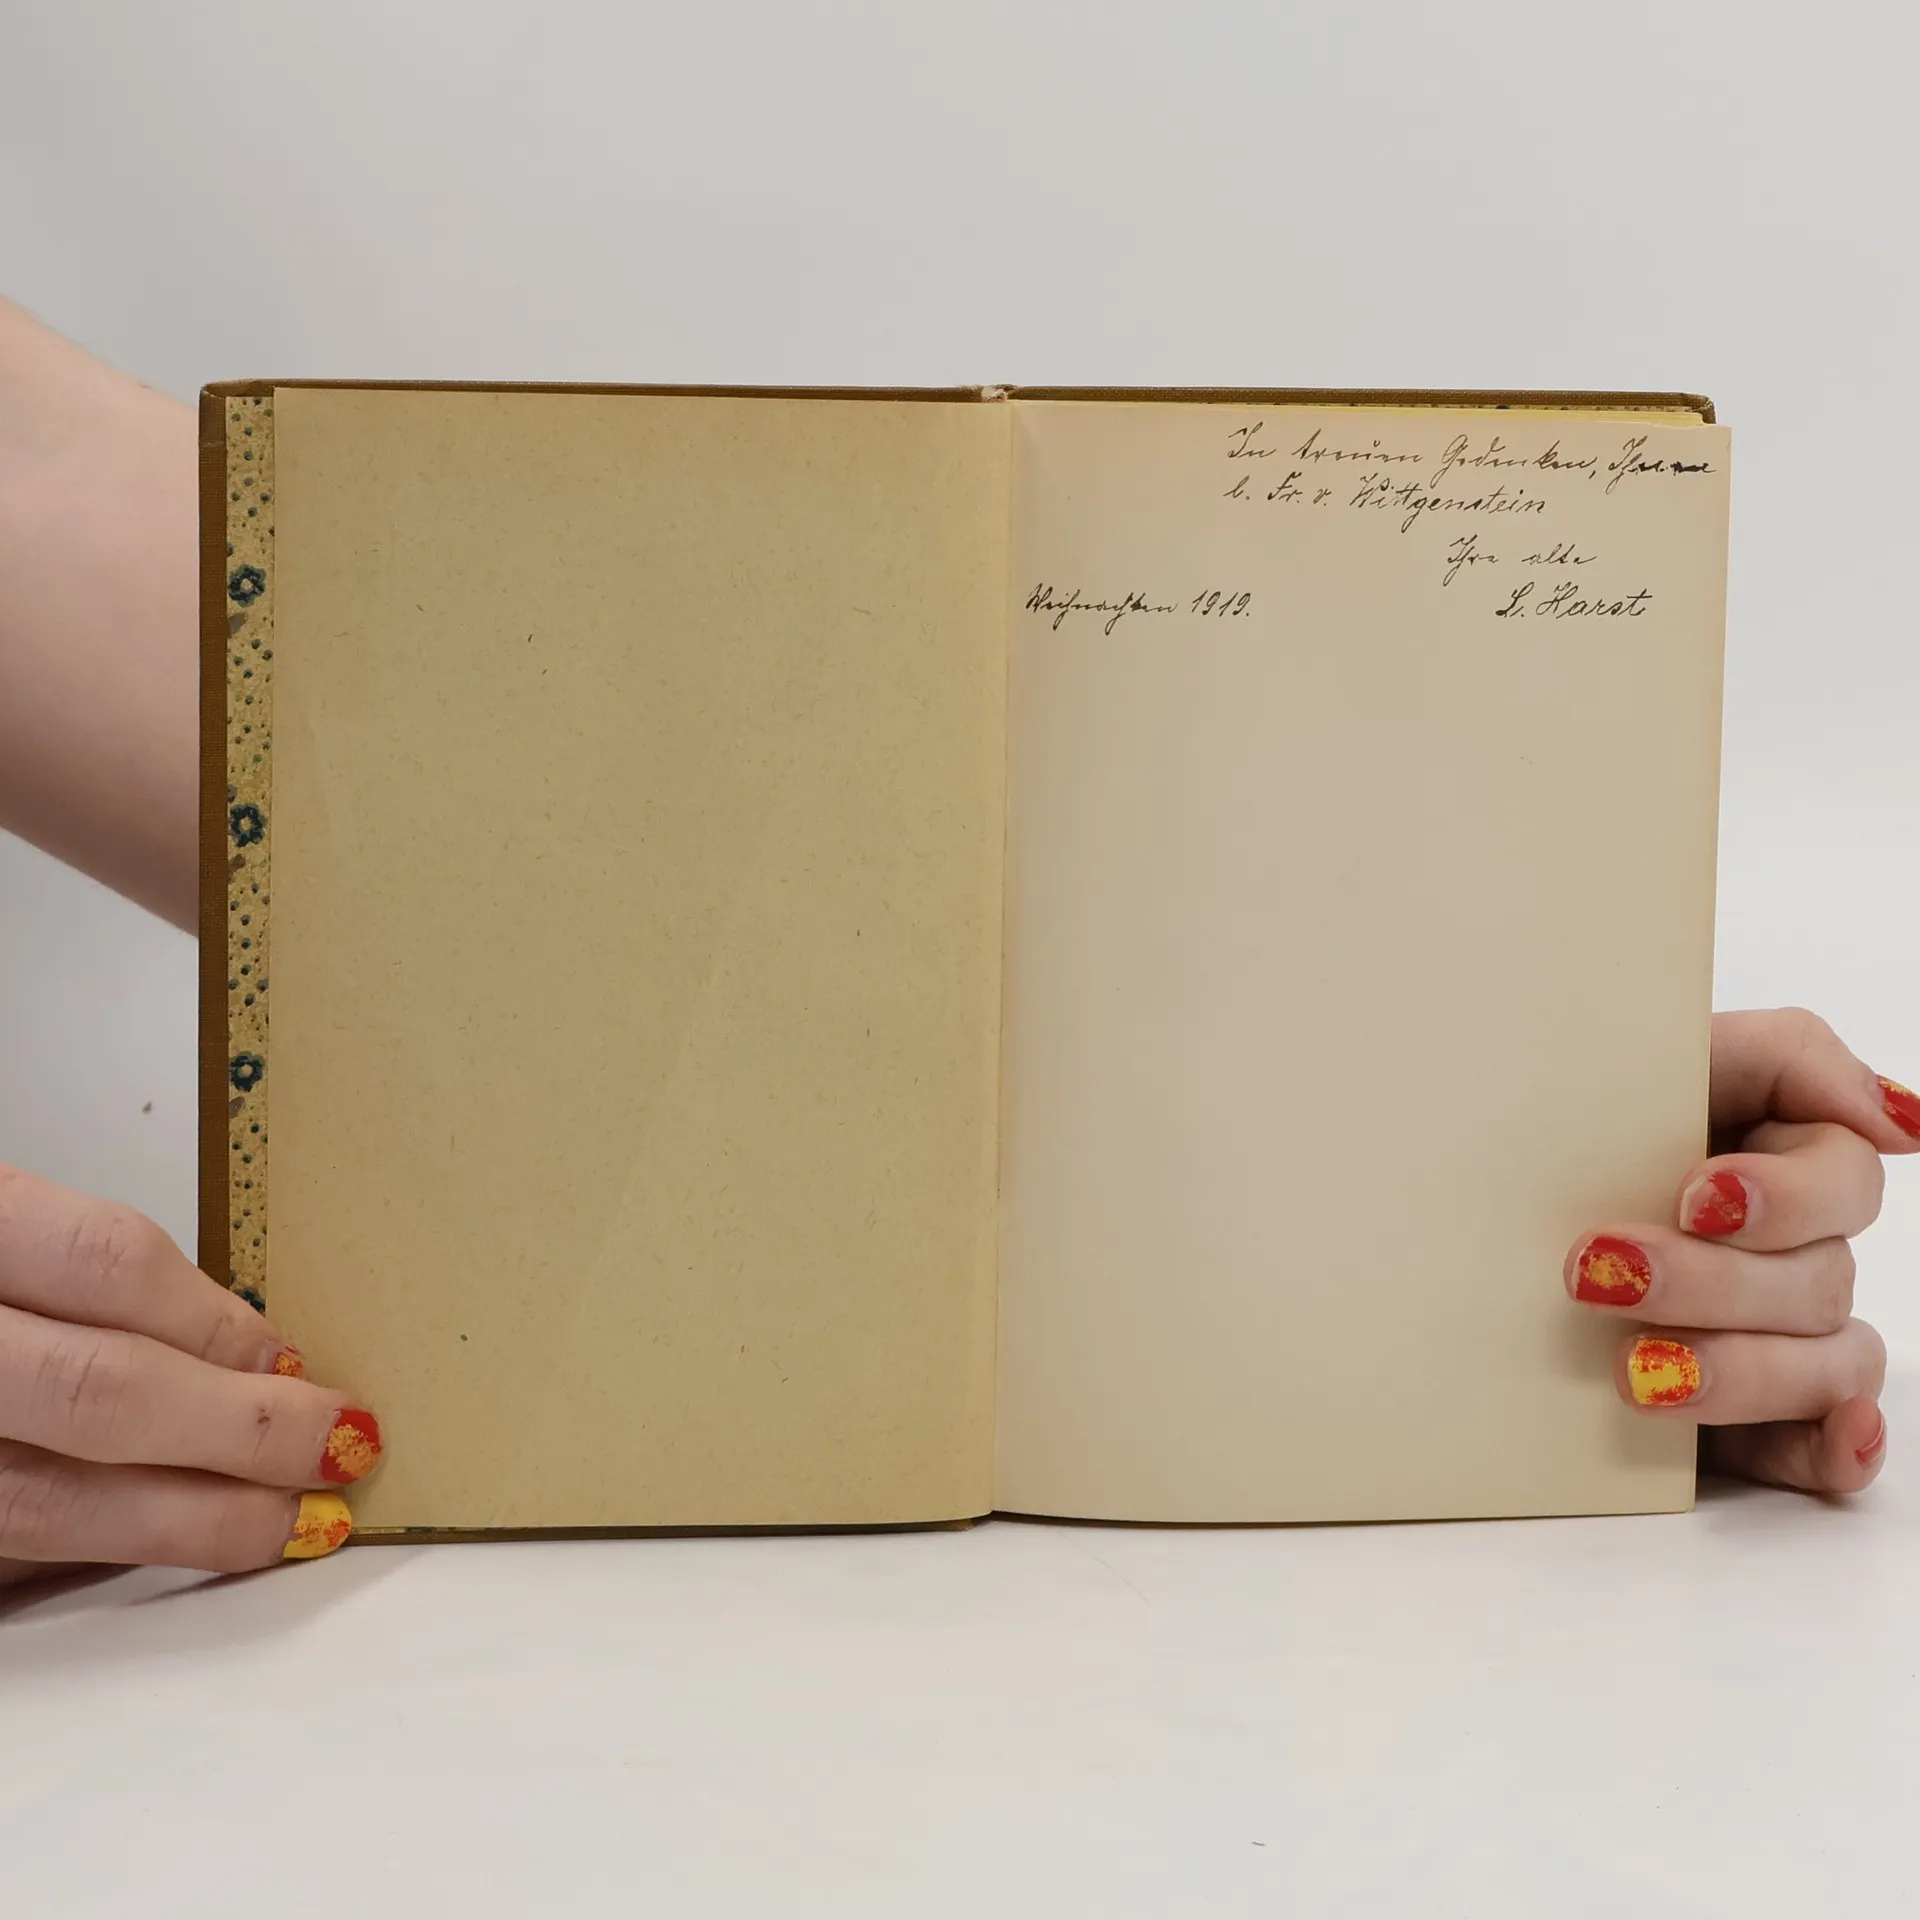 In treuen Gedenken, Ihnen
l. Fr. v. Wittgenstein
Ihre alte
Weihnachten 1919. L. Harst